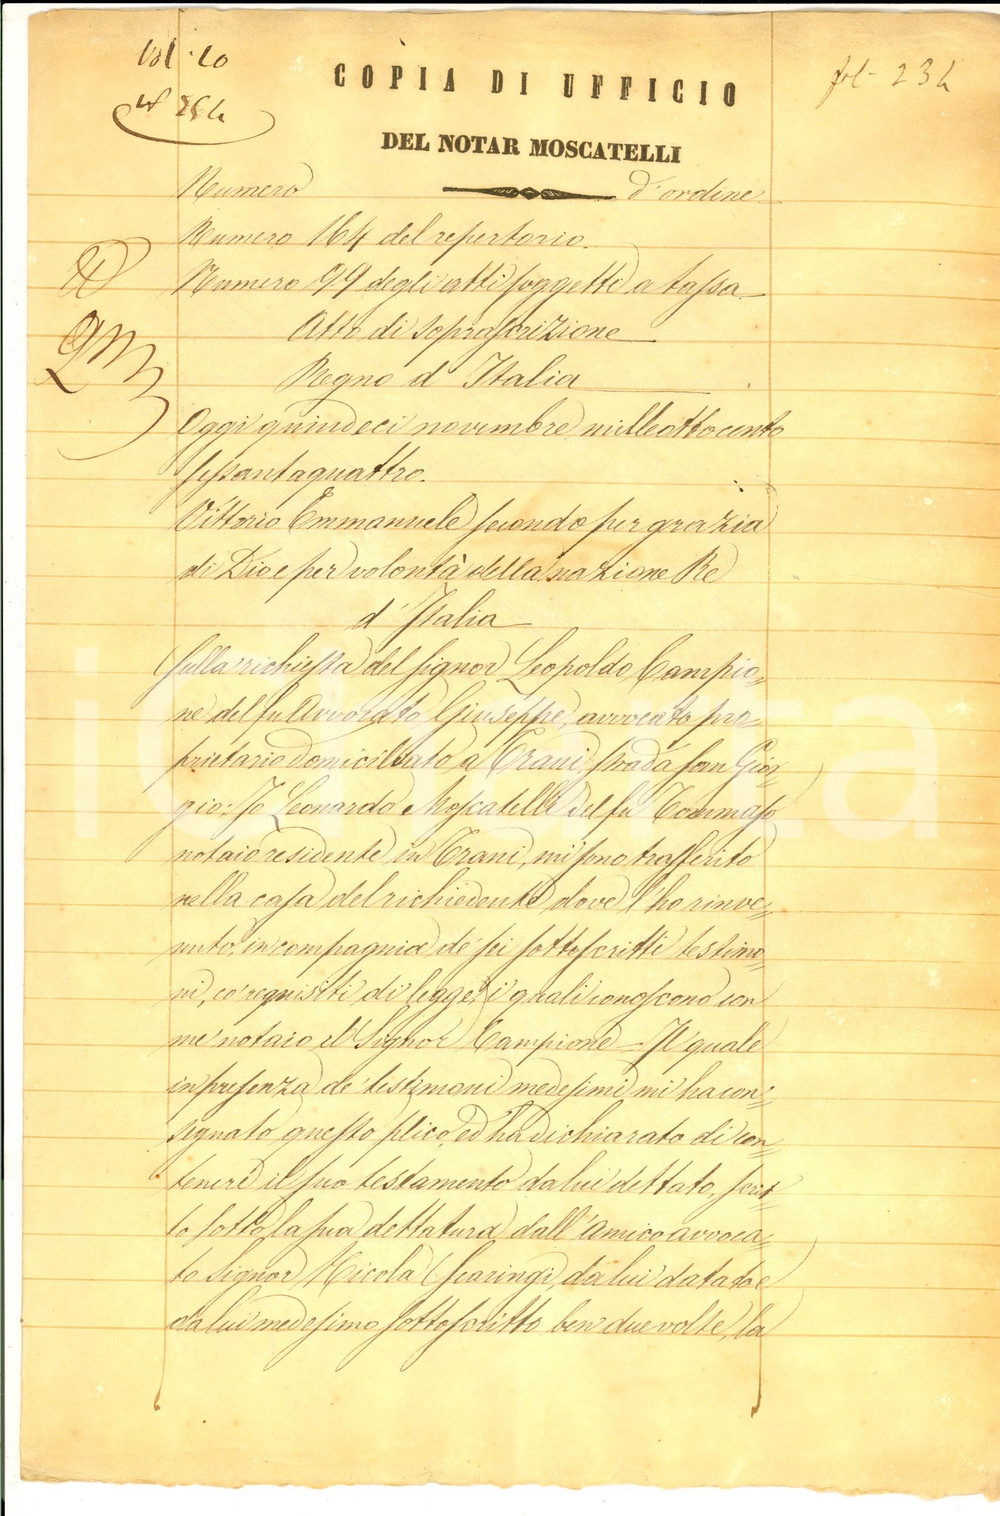 Vol. 20
fol. 234
n° 254
COPIA DI UFFICIO
DEL NOTAR MOSCATELLI
Numero d'ordine
Numero 164 del repertorio.
Numero 99 degli atti soggetti a tassa
Atto di soprascrizione
Regno d'Italia
Oggi quindeci novembre milleottocento
sessantaquattro.
Vittorio Emmanuele secondo per grazia
di Dio e per volontà della nazione Re
d'Italia
Sulla richiesta del signor Leopoldo Campio=
ne del fu Avvocato Giuseppe, avvocato pro=
prietario domiciliato a Trani, strada san Gior=
gio: Io Leonardo Moscatelli del fu Tommaso
notaio residente in Trani, mi sono trasferito
nella casa del richiedente dove l'ho rinve=
nuto, in compagnia de' sei sottoscritti testimo=
ni, co' requisiti di legge, i quali conoscono con
me notaio il Signor Campione – Il quale
in presenza de' testimoni medesimi mi ha con=
segnato questo plico, ed ha dichiarato di con=
tenere il suo testamento da lui dettato, scrit=
to sotto la sua dettatura dall'amico avvoca=
to Signor Nicola Scaringi, da lui datato e
da lui medesimo sottoscritto ben due volte, la